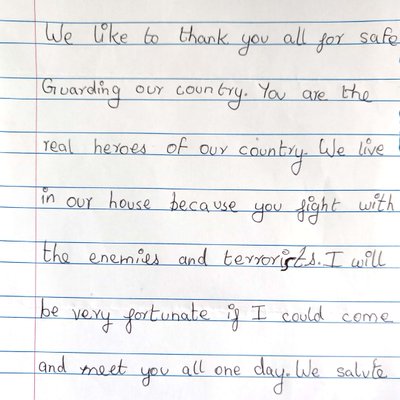 We like to thank you all for safe
Guarding our country. You are the
real heroes of our country. We live
in our house because you fight with
the enemies and terrorists. I will
be very fortunate if I could come
and meet you all one day. We salute